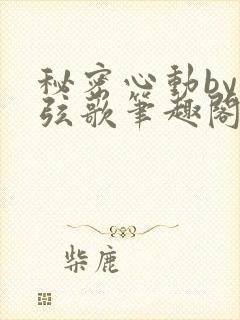 秘密心動by
弦歌筆趣閣
柴鹿